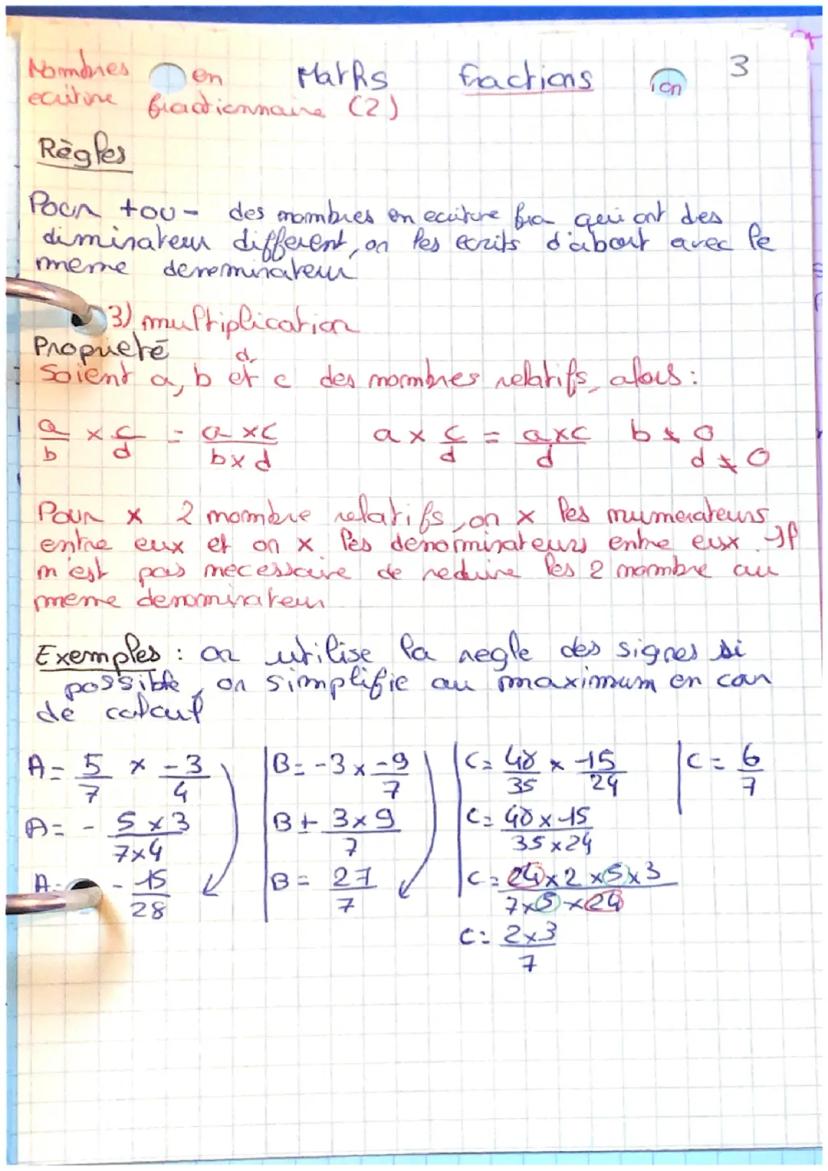 Nombres en Maths fractions ion 3
ecriture fractionnaire (2)
Règles
Pour + ou - des nombres en ecriture fra qui ont des
diminateur different, on les ecrits d'abort avec le
meme denominateur
3) multiplication
Propriété
d,
Soient a, b et c des nombres relatifs, alors :
a/b × c/d = a×c/b×d a × c/d = a×c/d b ≠ 0
d ≠ 0
Pour × 2 nombre relatifs, on × les numerateurs
entre eux et on × les denominateurs entre eux. Il
n'est pas necessaire de reduire les 2 nombre au
meme denominateur
Exemples : on utilise la regle des signes si
possible, on simplifie au maximum en cour
de calcul
A = 5/7 × -3/4
A = - 5×3/7×4
A - 15/28
B = -3 × -9/7
B + 3×9/7
B = 27/7
C = 48/35 × -15/24
C = 48×-15/35×24
C = 24×2×5×3/7×5×24
C = 2×3/7
C = 6/7